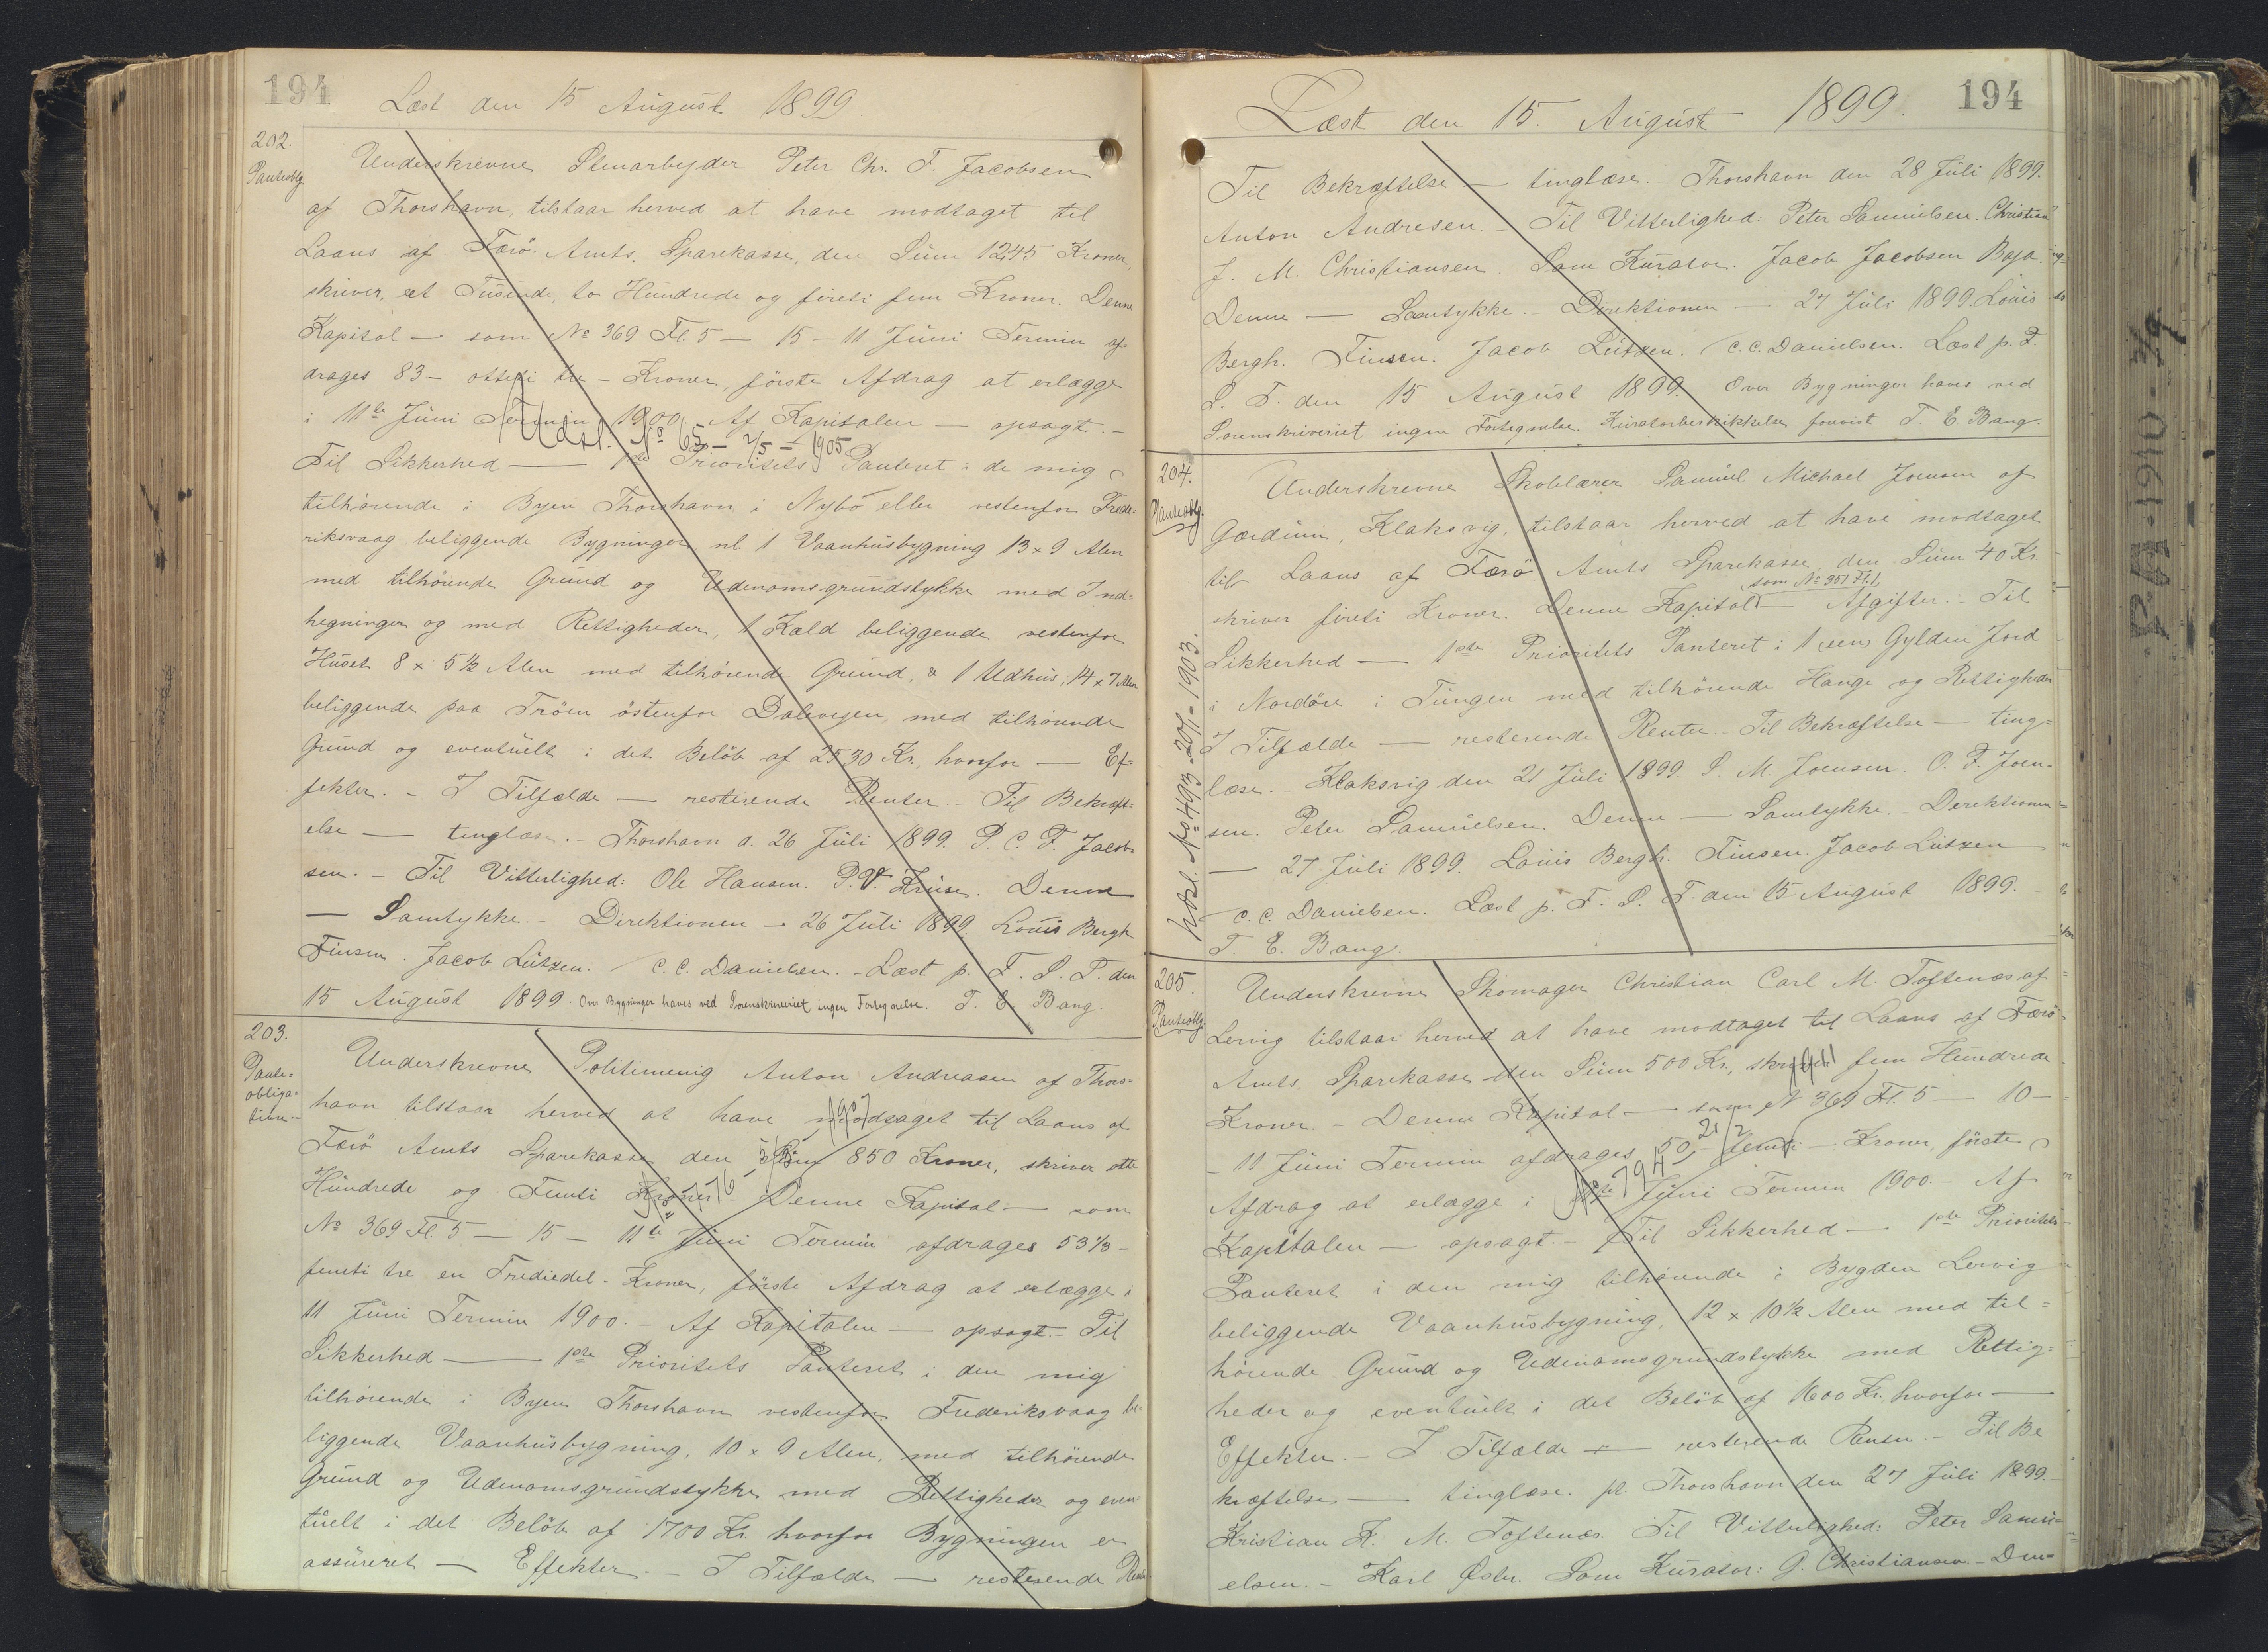 194
Læst den 15 August 1899
202.
Panteoblg.
Underskrevne Stenarbejder Peter Chr. F. Jacobsen
af Thorshavn, tilstaar herved at have modtaget til
Laans af Færö Amts Sparekasse, den Sum 1245 Kroner,
skriver, et Tusinde, to Hundrede og fireti fem Kroner. Denne
Kapital — som No 369 Fl. 5 — 15 — 11 Juni Termin af
drages 83 — otteti tre — Kroner, förste Afdrag at erlægge
i 11te Juni Termin 1900. Af Kapitalen — opsagt. —
Udsl. No 65 — 2/5 — 1905
Til Sikkerhed — 1ste Prioritets Panteret i de mig
tilhörende i Byen Thorshavn i Nybö eller vestenfor Frede-
riksvaag beliggende Bygninger nl. 1 Vaanhusbygning 13 x 9 Alen
med tilhörende Grund og Udenomsgrundstykke med Ind=
hegninger og med Rettigheder, 1 Kæld beliggende vestenfor
Huset 8 x 5½ Alen med tilhörende Grund, & 1 Udhus, 14 x 7 Alen
beliggende paa Tröen östenfor Dalevejen, med tilhörende
Grund og eventuelt i det Belöb af 2530 Kr, hvorfor — Ef=
fekter. — I Tilfælde — resterende Renter. — Til Bekræft-
else — tinglæse. — Thorshavn d. 26 Juli 1899. P. C. F. Jacob
sen. — Til Vitterlighed: Ole Hansen. P. V. Kruse. Denne
— Samtykke. — Direktionen — 26 Juli 1899. Louis Bergh
Finsen. Jacob Lützen. C. C. Danielsen. — Læst p. F. S. T. den
15 August 1899. Over Bygninger haves ved Sorenskriveriet ingen Fortegnelse. T. E. Bang.
203.
Pante=
obliga=
tion
Underskrevne Politimenig Anton Andreasen af Thors=
havn tilstaar herved at have modtaget til Laans af
1907
Færö Amts Sparekasse den Sum 850 Kroner, skriver otte
Hundrede og Femti Kroner — Denne Kapital — som
No 776
No 369 Fl. 5 — 15 — 11te Juni Termin afdrages 53⅓ —
femti tre en Trediedel — Kroner, förste Afdrag at erlægge i
11 Juni Termin 1900. — Af Kapitalen — opsagt. — Til
Sikkerhed — 1ste Prioritets Panteret i den mig
tilhörende i Byen Thorshavn vestenfor Frederiksvaag be-
liggende Vaanhusbygning, 10 x 9 Alen, med tilhörende
Grund og Udenomsgrundstykke med Rettigheder og even-
tuelt i det Belöb af 1700 Kr. hvorfor Bygningen er
assureret — Effekter. — I Tilfælde — resterende
Læst den 15. August 1899.
194
Til Bekræftelse — tinglæse. Thorshavn den 28 Juli 1899.
Anton Andresen. — Til Vitterlighed: Peter Samuelsen. Christian
J. M. Christiansen. Som Kurator: Jacob Jacobsen
Denne — Samtykke. — Direktionen — 27 Juli 1899. Louis
Bergh. Finsen. Jacob Lützen. C. C. Danielsen. Læst p. F.
S. T. den 15 August 1899. Over Bygninger haves ved
Sorenskriveriet ingen Fortegnelse. Kuratorbeskikkelse forevist T. E. Bang.
204.
Panteoblg.
Underskrevne Skolelærer Samuel Michael Joensen af
Gærdum, Klaksvig, tilstaar herved at have modtaget
til Laans af Færö Amts Sparekasse den Sum 40 Kr
som No 351 Fl. 1,
skriver fireti Kroner. Denne Kapital — Afgifter. — Til
Sikkerhed — 1ste Prioritets Panteret i 1 (een) Gylden Jord
i Nordöre i Tungen med tilhörende Hauge og Rettigheder
I Tilfælde — resterende Renter. — Til Bekræftelse — ting=
læse. — Klaksvig den 21 Juli 1899. S. M. Joensen. O. F. Joen-
sen. Peter Samuelsen. Denne — Samtykke. Direktionen
— 27 Juli 1899. Louis Bergh. Finsen. Jacob Lützen
C. C. Danielsen. Læst p. F. S. T. den 15 August 1899. —
T. E. Bang.
Udsl. No 493 - 20/1 - 1903.
205.
Panteoblg.
Underskrevne Skomager Christian Carl M. Toftenæs af
Lervig tilstaar herved at have modtaget til Laans af Færö
Amts Sparekasse den Sum 500 Kr., skriver fem Hundrede
1911
Kroner. — Denne Kapital — som No 369 Fl. 5 — 10 —
21/2
— 11 Juni Termin afdrages 50, — femti — Kroner, förste
No 794
Afdrag at erlægge i 11te Juni Termin 1900. — Af
Kapitalen — opsagt. — Til Sikkerhed — 1ste Prioritets
Panteret i den mig tilhörende i Bygden Lervig
beliggende Vaanhusbygning, 12 x 10½ Alen med til=
hörende Grund og Udenomsgrundstykke med Rettig=
heder og eventuelt i det Belöb af 1600 Kr, hvorfor —
Effekter. — I Tilfælde — resterende Renter. — Til Be
kræftelse — tinglæse. pt. Thorshavn den 27 Juli 1899. —
Kristian K. M. Toftenæs. Til Vitterlighed: Peter Samu=
elsen. — Karl Öster. Som Kurator: G. Christiansen. — Den=